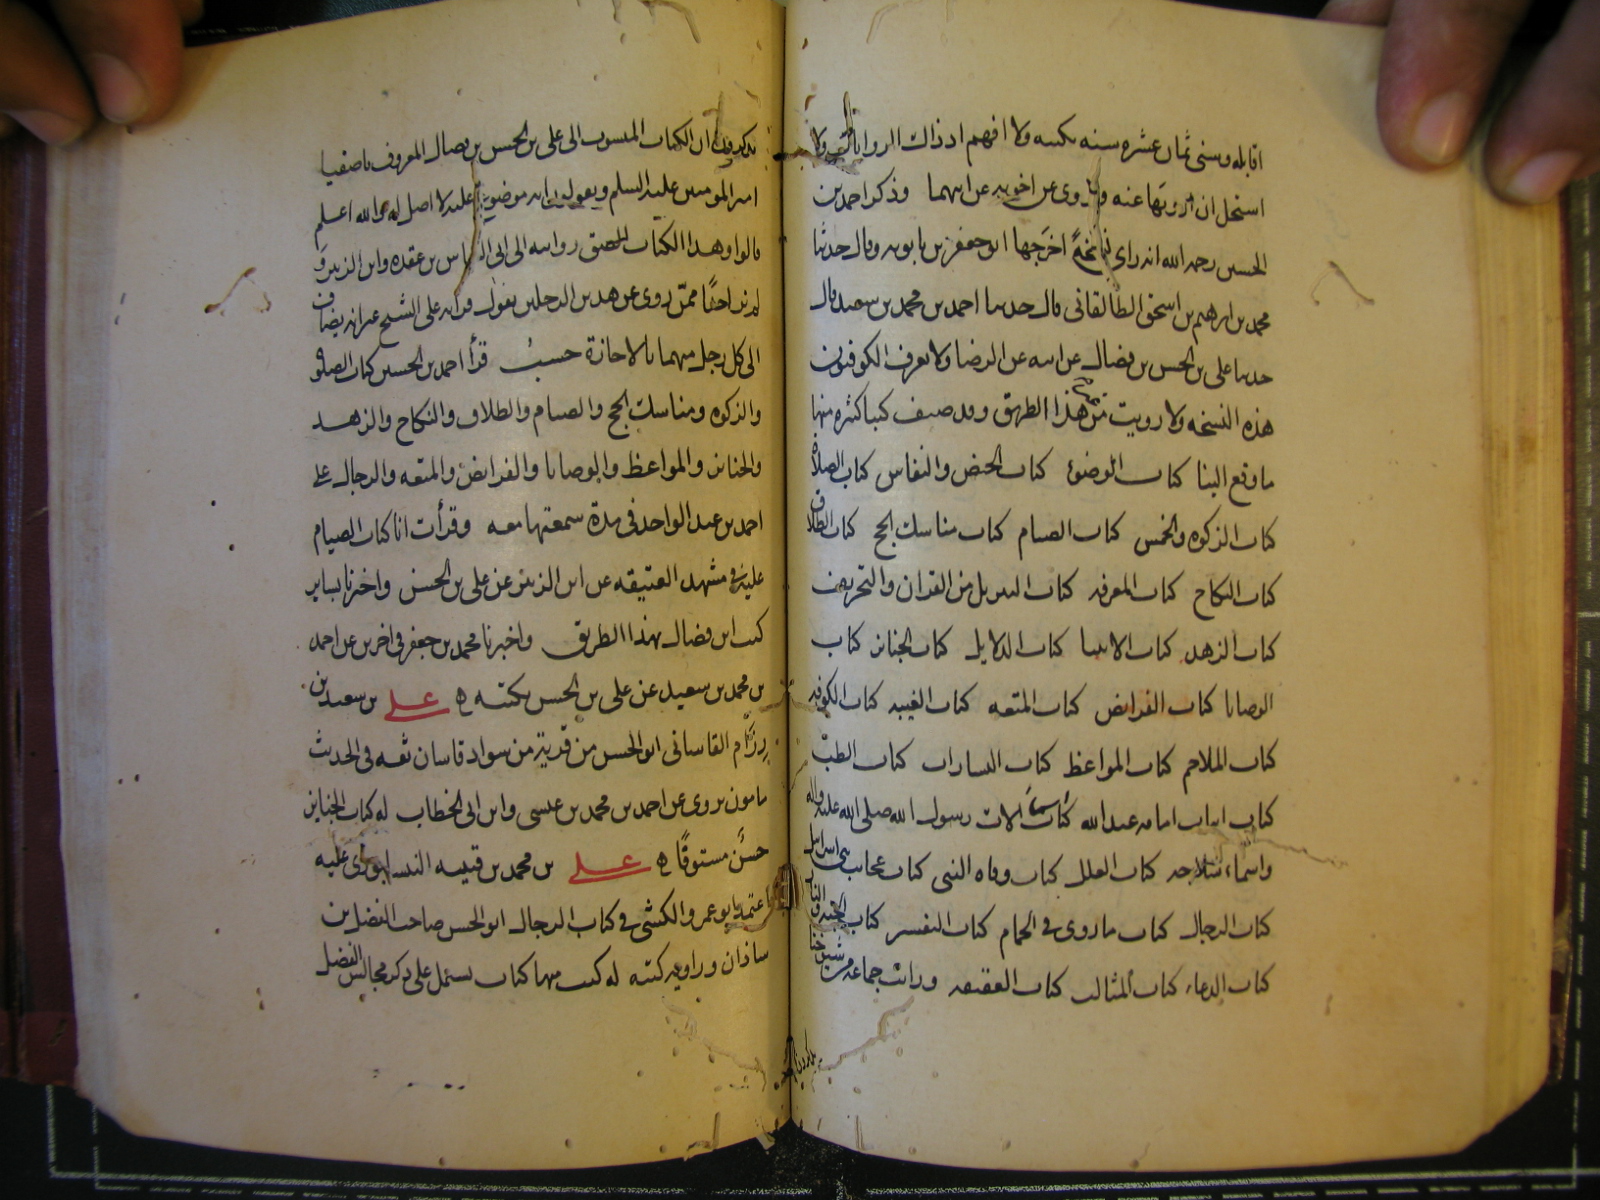 اقابله وسني ثمان عشره سنه بكتبه ولا افهم اذ ذاك الروايات ولا
استحل ان ارويها عنه وروى عن اخويه عن ابيهما وذكر احمد بن
الحسين رحمه الله انه راى نسخة اخرجها ابو جعفر بن بابويه وقال حدثنا
محمد بن ابرهيم بن اسحق الطالقاني قال حدثنا احمد بن محمد بن سعيد قال
حدثنا علي بن الحسن بن فضال عن ابيه عن الرضا ولا يعرف الكوفيون
هذه النسخه ولا رويت من هذا الطريق وقد صنف كتبا كثيره منها
ما وقع الينا كتاب الوضوء كتاب الحيض والنفاس كتاب الصلاة
كتاب الزكوه والخمس كتاب الصيام كتاب مناسك الحج كتاب الطلاق
كتاب النكاح كتاب المعرفه كتاب التنزيل من القران والتحريف
كتاب الزهد كتاب الانبيا كتاب الدلايل كتاب الجنائز كتاب
الوصايا كتاب الفرائض كتاب المتعه كتاب الغيبه كتاب الكوفه
كتاب الملاحم كتاب المواعظ كتاب البشارات كتاب الطب
كتاب اثبات امامه عبد الله كتاب اسما الات رسول الله صلى الله عليه واله
واسماء سلاحه كتاب العلل كتاب وفاه النبي كتاب عجايب بني اسرائيل
كتاب الرجال كتاب ما روى في الحمام كتاب التفسير كتاب الجنه والنار
كتاب الدعاء كتاب المثالب كتاب العقيقه ورايت جماعه من شيوخنا
يذكرون
يذكرون ان الكتاب المنسوب الى علي بن الحسن بن فضال المعروف باصفيا
امير المومنين عليه السلم ويقولون انه موضوع عليه لا اصل له والله اعلم
قالوا وهذا الكتاب الصق روايته الى ابي العباس بن عقده وابن الزبير و
لم نر احدًا ممن روى عن هذين الرجلين يقول قراته على الشيخ غير انه يضاف
الى كل رجل منهما بالاجازة حسب قرأ احمد بن الحسين كتاب الصلوة
والزكوه ومناسك الحج والصيام والطلاق والنكاح والزهد
والجنائز والمواعظ والوصايا والفرائض والمتعه والرجال على
احمد بن عبد الواحد في مدة سمعتها معه وقرأت انا كتاب الصيام
عليه في مشهد العتيقه عن ابن الزبير عن علي بن الحسن واخبرنا بساير
كتب ابن فضال بهذا الطريق واخبرنا محمد بن جعفر في اخرين عن احمد
بن محمد بن سعيد عن علي بن الحسن بكتبه ه علي بن سعيد بن
رزام القاساني ابو الحسن من قرية من سواد قاسان ثقه في الحديث
مامون روى عن احمد بن محمد بن عيسى وابن ابي الخطاب له كتاب الجنايز
حسن مستوفًا ه علي بن محمد بن قتيبه النيسابوري عليه
اعتمد ابو عمرو الكشي في كتاب الرجال ابو الحسن صاحب الفضل بن
شاذان وراويه كتبه له كتب منها كتاب يشتمل على ذكر مجالس الفضل